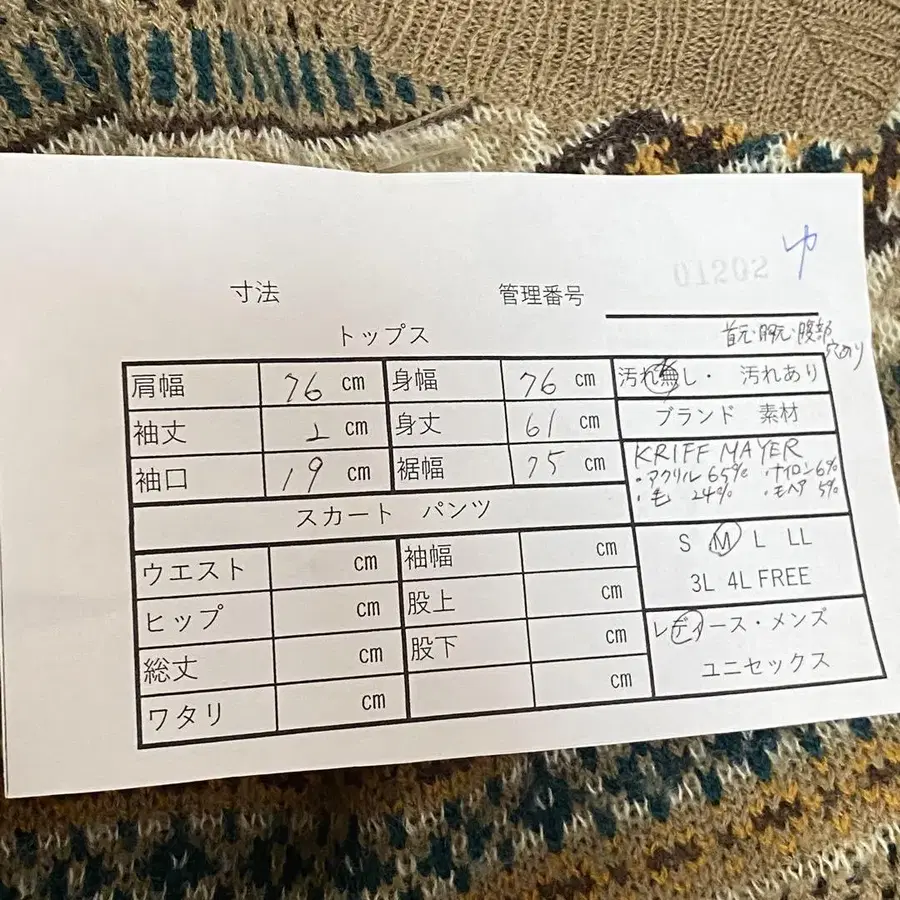 ゆ
01202
寸法 管理番号
トップス
首元・胸元・腹部
穴あり
肩幅 76 cm 身幅 76 cm 汚れ無し・ 汚れあり
袖丈 2 cm 身丈 61 cm ブランド 素材
袖口 19 cm 裾幅 75 cm KRIFF MAYER
・アクリル 65% ・ナイロン 6%
・毛 24% ・モヘア 5%
スカート パンツ
ウエスト cm 袖幅 cm S M L LL
ヒップ cm 股上 cm 3L 4L FREE
総丈 cm 股下 cm レディース・メンズ
ワタリ cm cm ユニセックス